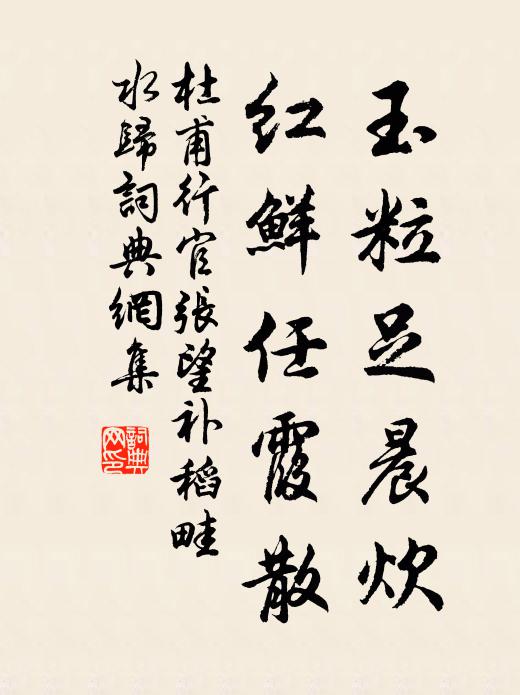 玉粒足晨炊
红鮮任霞散
杜甫行官張望补稻畦
水歸詞典網集
詞典
网印